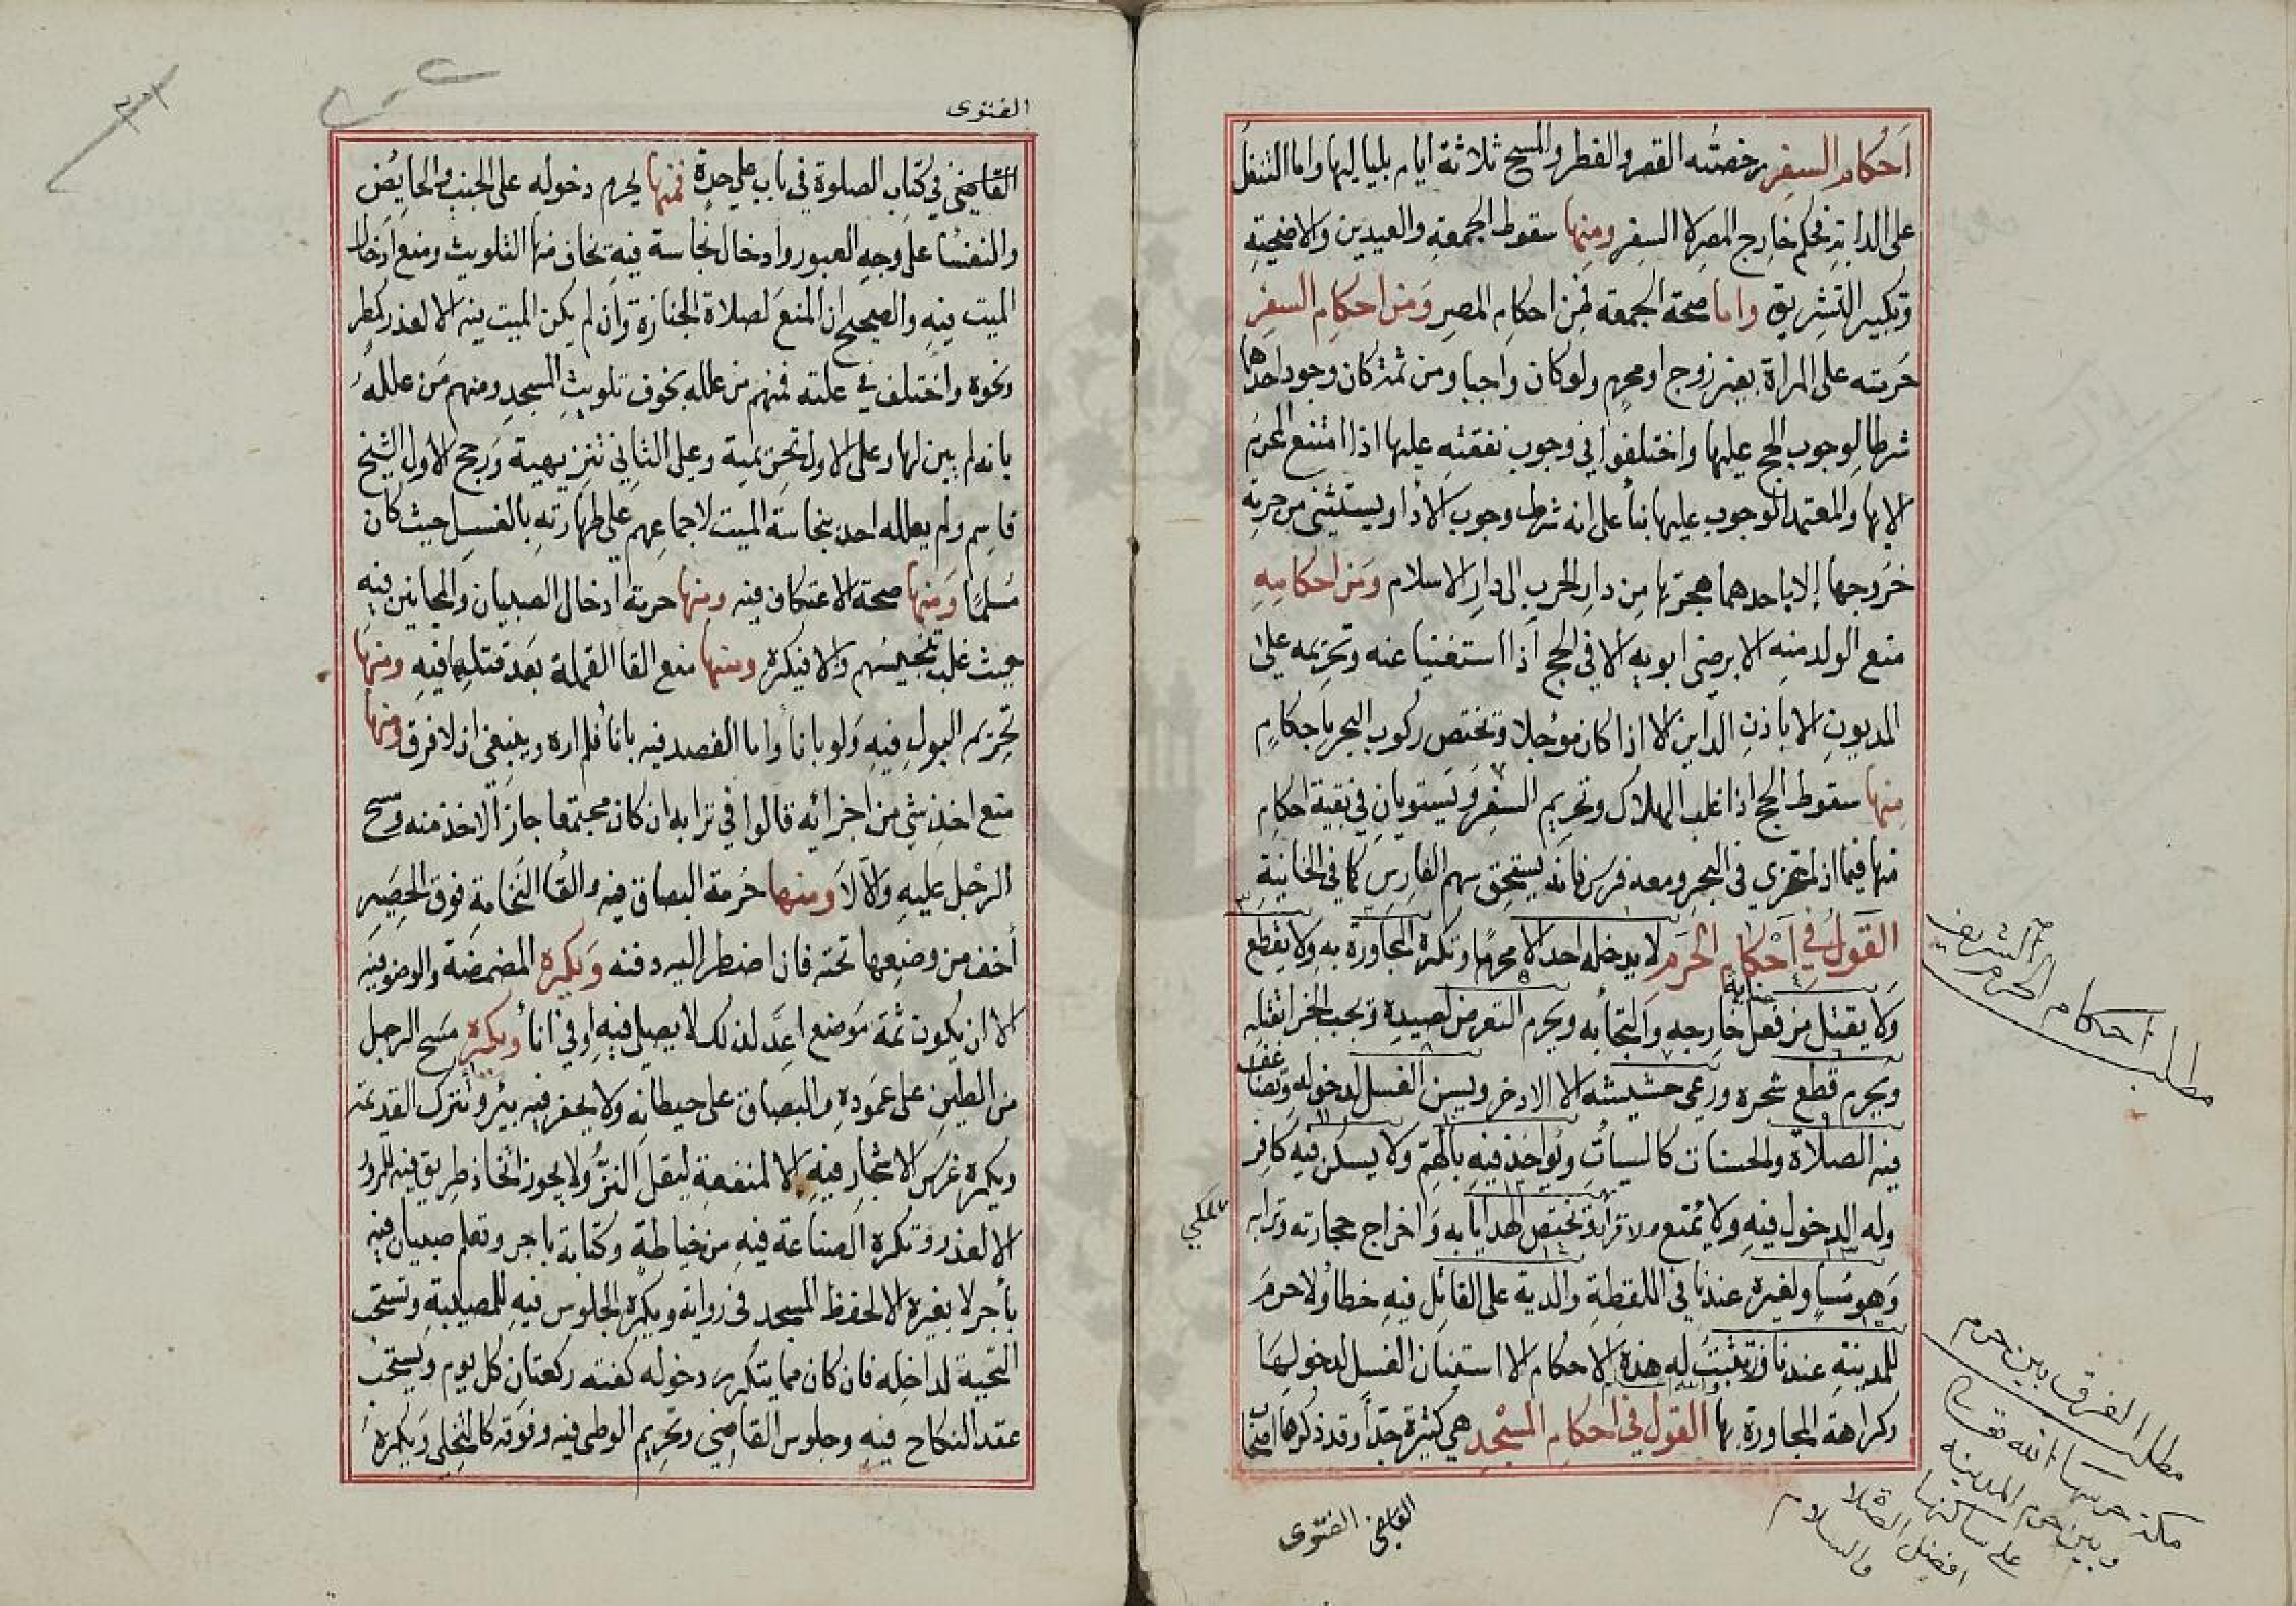 احكام السفر رخصته القصر والفطر والمسح ثلاثة ايام بلياليها واما التنفل
على الدابة فحكم خارج المصر لا السفر ومنها سقوط الجمعة والعيدين والاضحية
وتكبير التشريق واما صحة الجمعة فمن احكام المصر ومن احكام السفر
حرمته على المراة بغير زوج او محرم ولو كان واجبا ومن ثمة كان وجود احدهما
شرطا لوجوب الحج عليها واختلفوا في وجوب نفقته عليها اذا امتنع المحرم
الا بها والمعتمد الوجوب عليها بنأ على انه شرط وجوب الادا ويستثنى من حرمة
خروجها إلا باحدهما هجرتها من دار الحرب الى دار الاسلام ومن احكامه
منع الولد منه الا برضى ابويه الا في الحج اذا استغنيا عنه وتحريمه على
المديون الا باذن الداين الا اذا كان مؤجلا وتختص ركوب البحر باحكام
منها سقوط الحج اذا غلب الهلاك وتحريم السفر ويستويان في بقية احكام
منها فيما اذا غزى في البحر ومعه فرس فانه يستحق سهم الفارس كما في الخانية
القول في احكام الحرم لا يدخله احد الا محرما وتكره المجاورة به ولا يقطع
جناية
ولا يقتل من فعل خارجه والتجأ به ويحرم التعرض لصيده وتجب الجزا بقتله
ويحرم قطع شجره ورعى حشيشه الا الادخر ويسن الغسل لدخوله وتضاعف
فيه الصلاة والحسنات كالسيأت ويؤاخذ فيه بالهم ولا يسكن فيه كافر
وله الدخول فيه ولا يمتع ولا قران وتختص الهدايا به واخراج حجارته وترابه
للمكي
وهو مساو لغيره عندنا في اللقطة والدية على القاتل فيه خطأ ولا حرم
للمدينة عندنا فلا تثبت له هذه الاحكام الا استنان الغسل لدخولها
وكراهة المجاورة بها القول في احكام المسجد هي كثيرة جدا وقد ذكرها اصحاب
مطلب احكام الحرم الشريف
مطلب الفرق بين حرم
مكة حرسها الله تعالى
وبين حرم المدينة
على ساكنها
افضل الصلاة
والسلام
القاضي الفتوى
الفتوى
القاضي في كتاب الصلوة في باب على حدة فمنها يحرم دخوله على الجنب والحايض
والنفسا على وجه العبور وادخال نجاسة فيه يخاف منها التلويث ومنع ادخال
الميت فيه والصحيح ان المنع لصلاة الجنازة وان لم يكن الميت فيه الا لعذر كمطر
ونحوه واختلف في علته فمنهم من علله بخوف تلويث المسجد ومنهم من علله
بانه لم يبن لها وعلى الاول تحريمية وعلى الثاني تنزيهية ورجح الاول الشيخ
قاسم ولم يعلله احد بنجاسة الميت لاجماعهم على طهارته بالغسل حيث كان
مسلما ومنها صحة الاعتكاف فيه ومنها حرمة ادخال الصبيان والمجانين فيه
حيث غلب تنجيسهم والا فيكره ومنها منع القا القملة بعد قتلها فيه ومنها
تحريم البول فيه ولو بانا واما الفصد فيه بانأ فلم اره وينبغي ان لا فرق ومنها
منع اخذ شي من اجزائه قالوا في ترابه ان كان مجتمعا جاز الاخذ منه ومسح
الرجل عليه والا لا ومنها حرمة البصاق فيه والقا النخامة فوق الحصير
أخف من وضعها تحته فان اضطر اليه دفنه ويكره المضمضة والوضو فيه
الا ان يكون ثمة موضع اعد لذلك لا يصلى فيه او في انأ ويكره مسح الرجل
من الطين على عموده والبصاق على حيطانه ولا يحفر فيه بئر وتترك القديمة
ويكره غرس الاشجار فيه الا لمنفعة ليقل النز ولا يجوز اتخاذ طريق فيه للمرور
الا لعذر وتكره الصناعة فيه من خياطة وكتابة باجر وتعلم صبيان فيه
بأجر لا بغيره الا لحفظ المسجد في رواية ويكره الجلوس فيه للمصيبة وتستحب
التحية لداخله فان كان مما يتكرر دخوله كفته ركعتان كل يوم ويستحب
عقد النكاح فيه وجلوس القاضي وتحريم الوطى فيه وفوقه كالتخلي ويكره